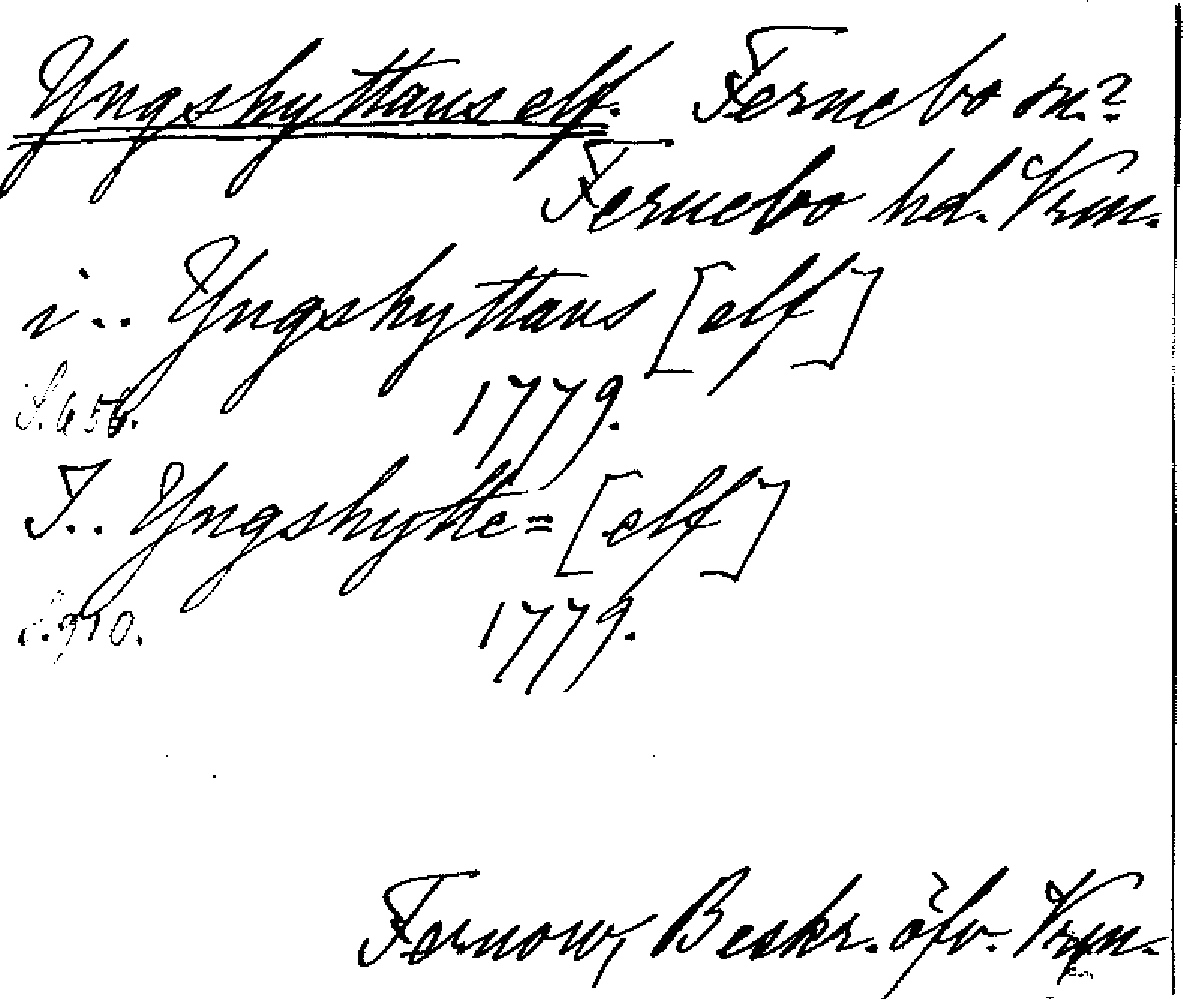 Yngshyttans elf. Fernebo sn?
Fernebo hd. Vrm.
i.. Yngshyttans [elf]
S. 656. 1779.
I.. Yngshytte= [elf]
S. 910. 1779.
Fernow, Beskr. öfv. Vrm.